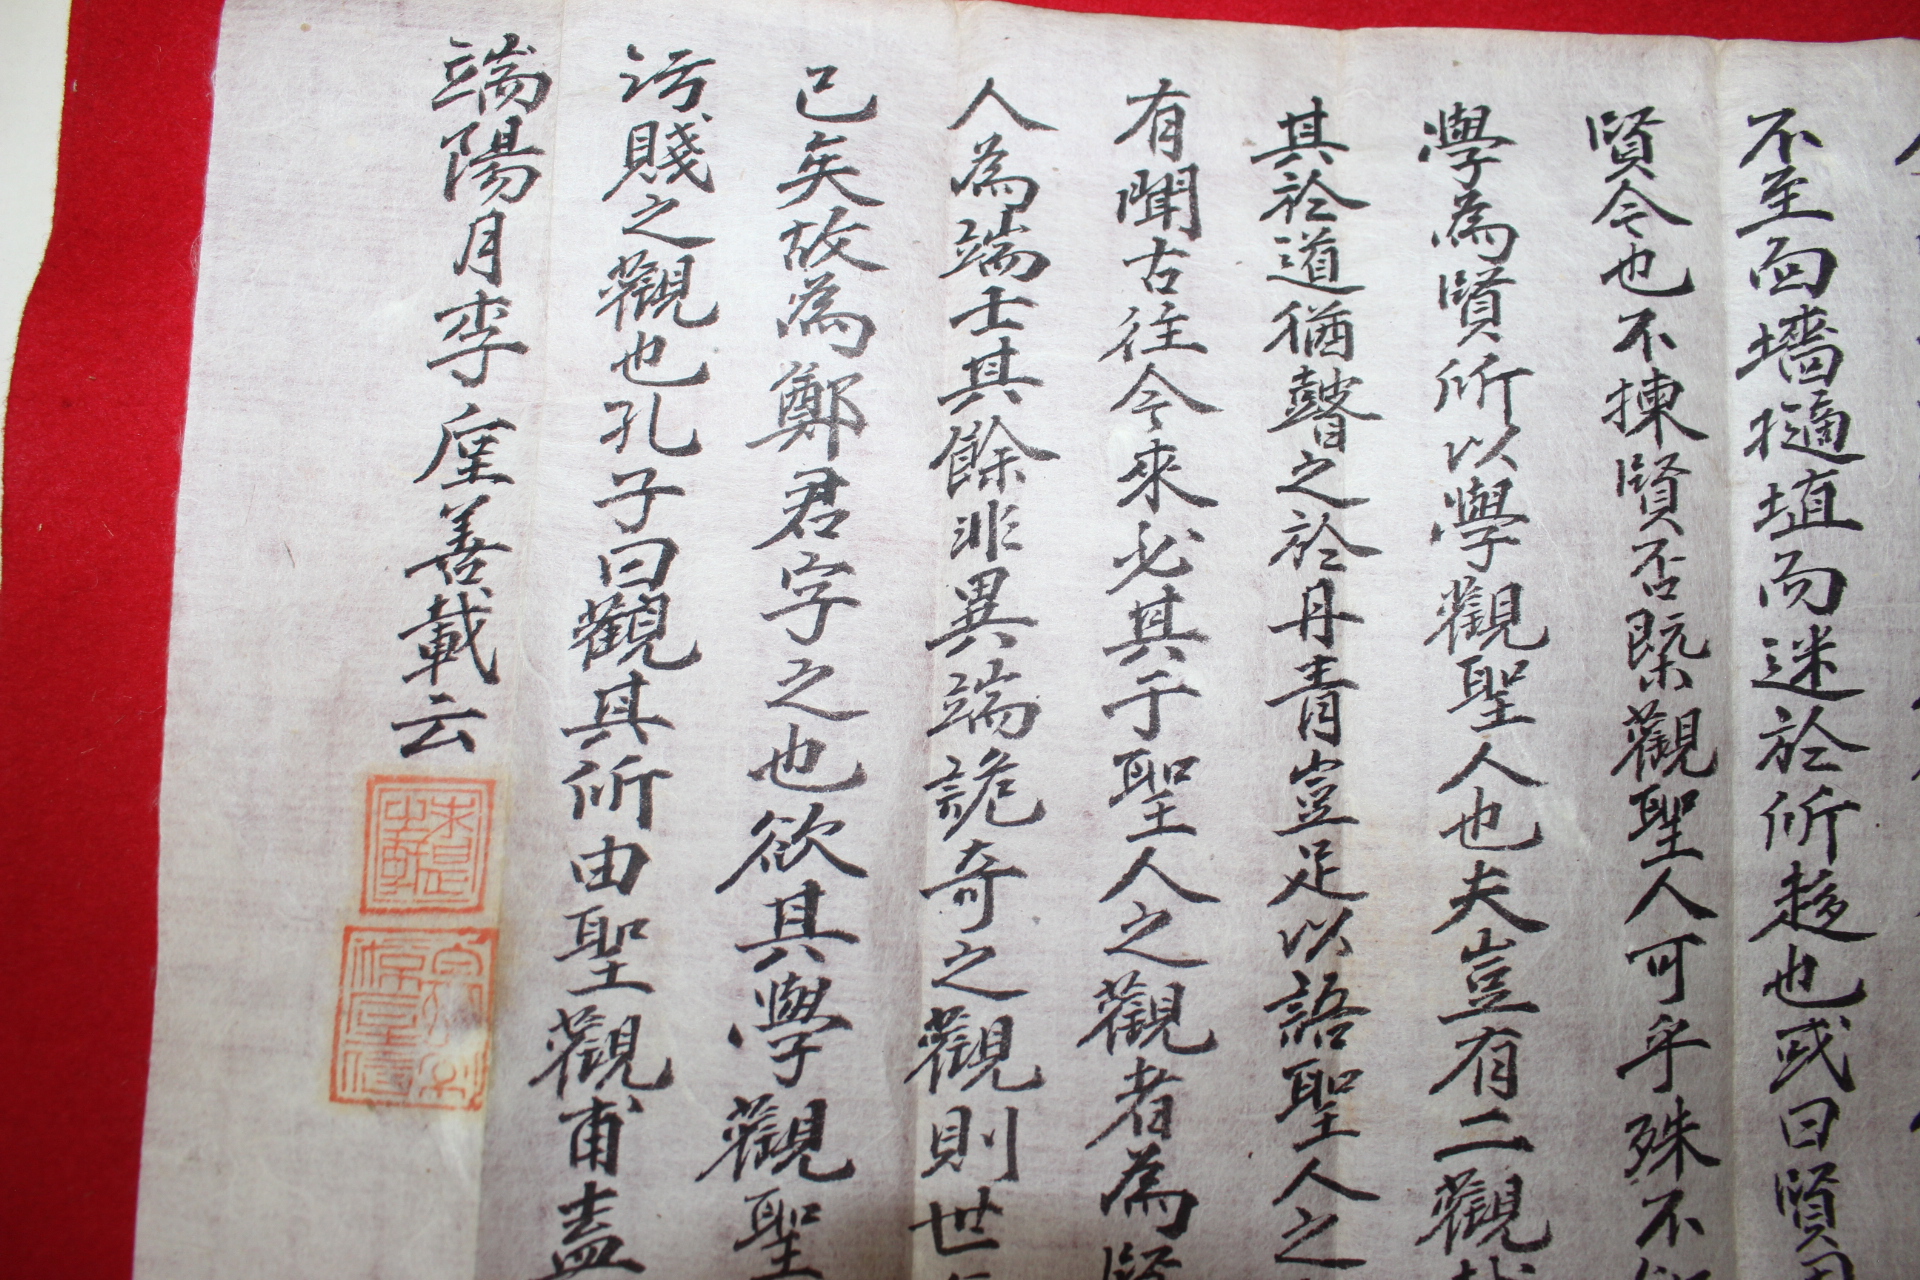 不至面墻擿埴而迷於所趍也或曰賢
賢令也不揀賢否槩觀聖人可乎殊不
學為賢所以學觀聖人也夫豈有二觀
其於道猶瞽之於丹青豈足以語聖人之
有聞古往今來必其于聖人之觀者為賢
人為端士其餘非異端詭奇之觀則世
已矣故為鄭君字之也欲其學觀聖
汚賤之觀也孔子曰觀其所由聖觀甫盖
端陽月李垕善載云